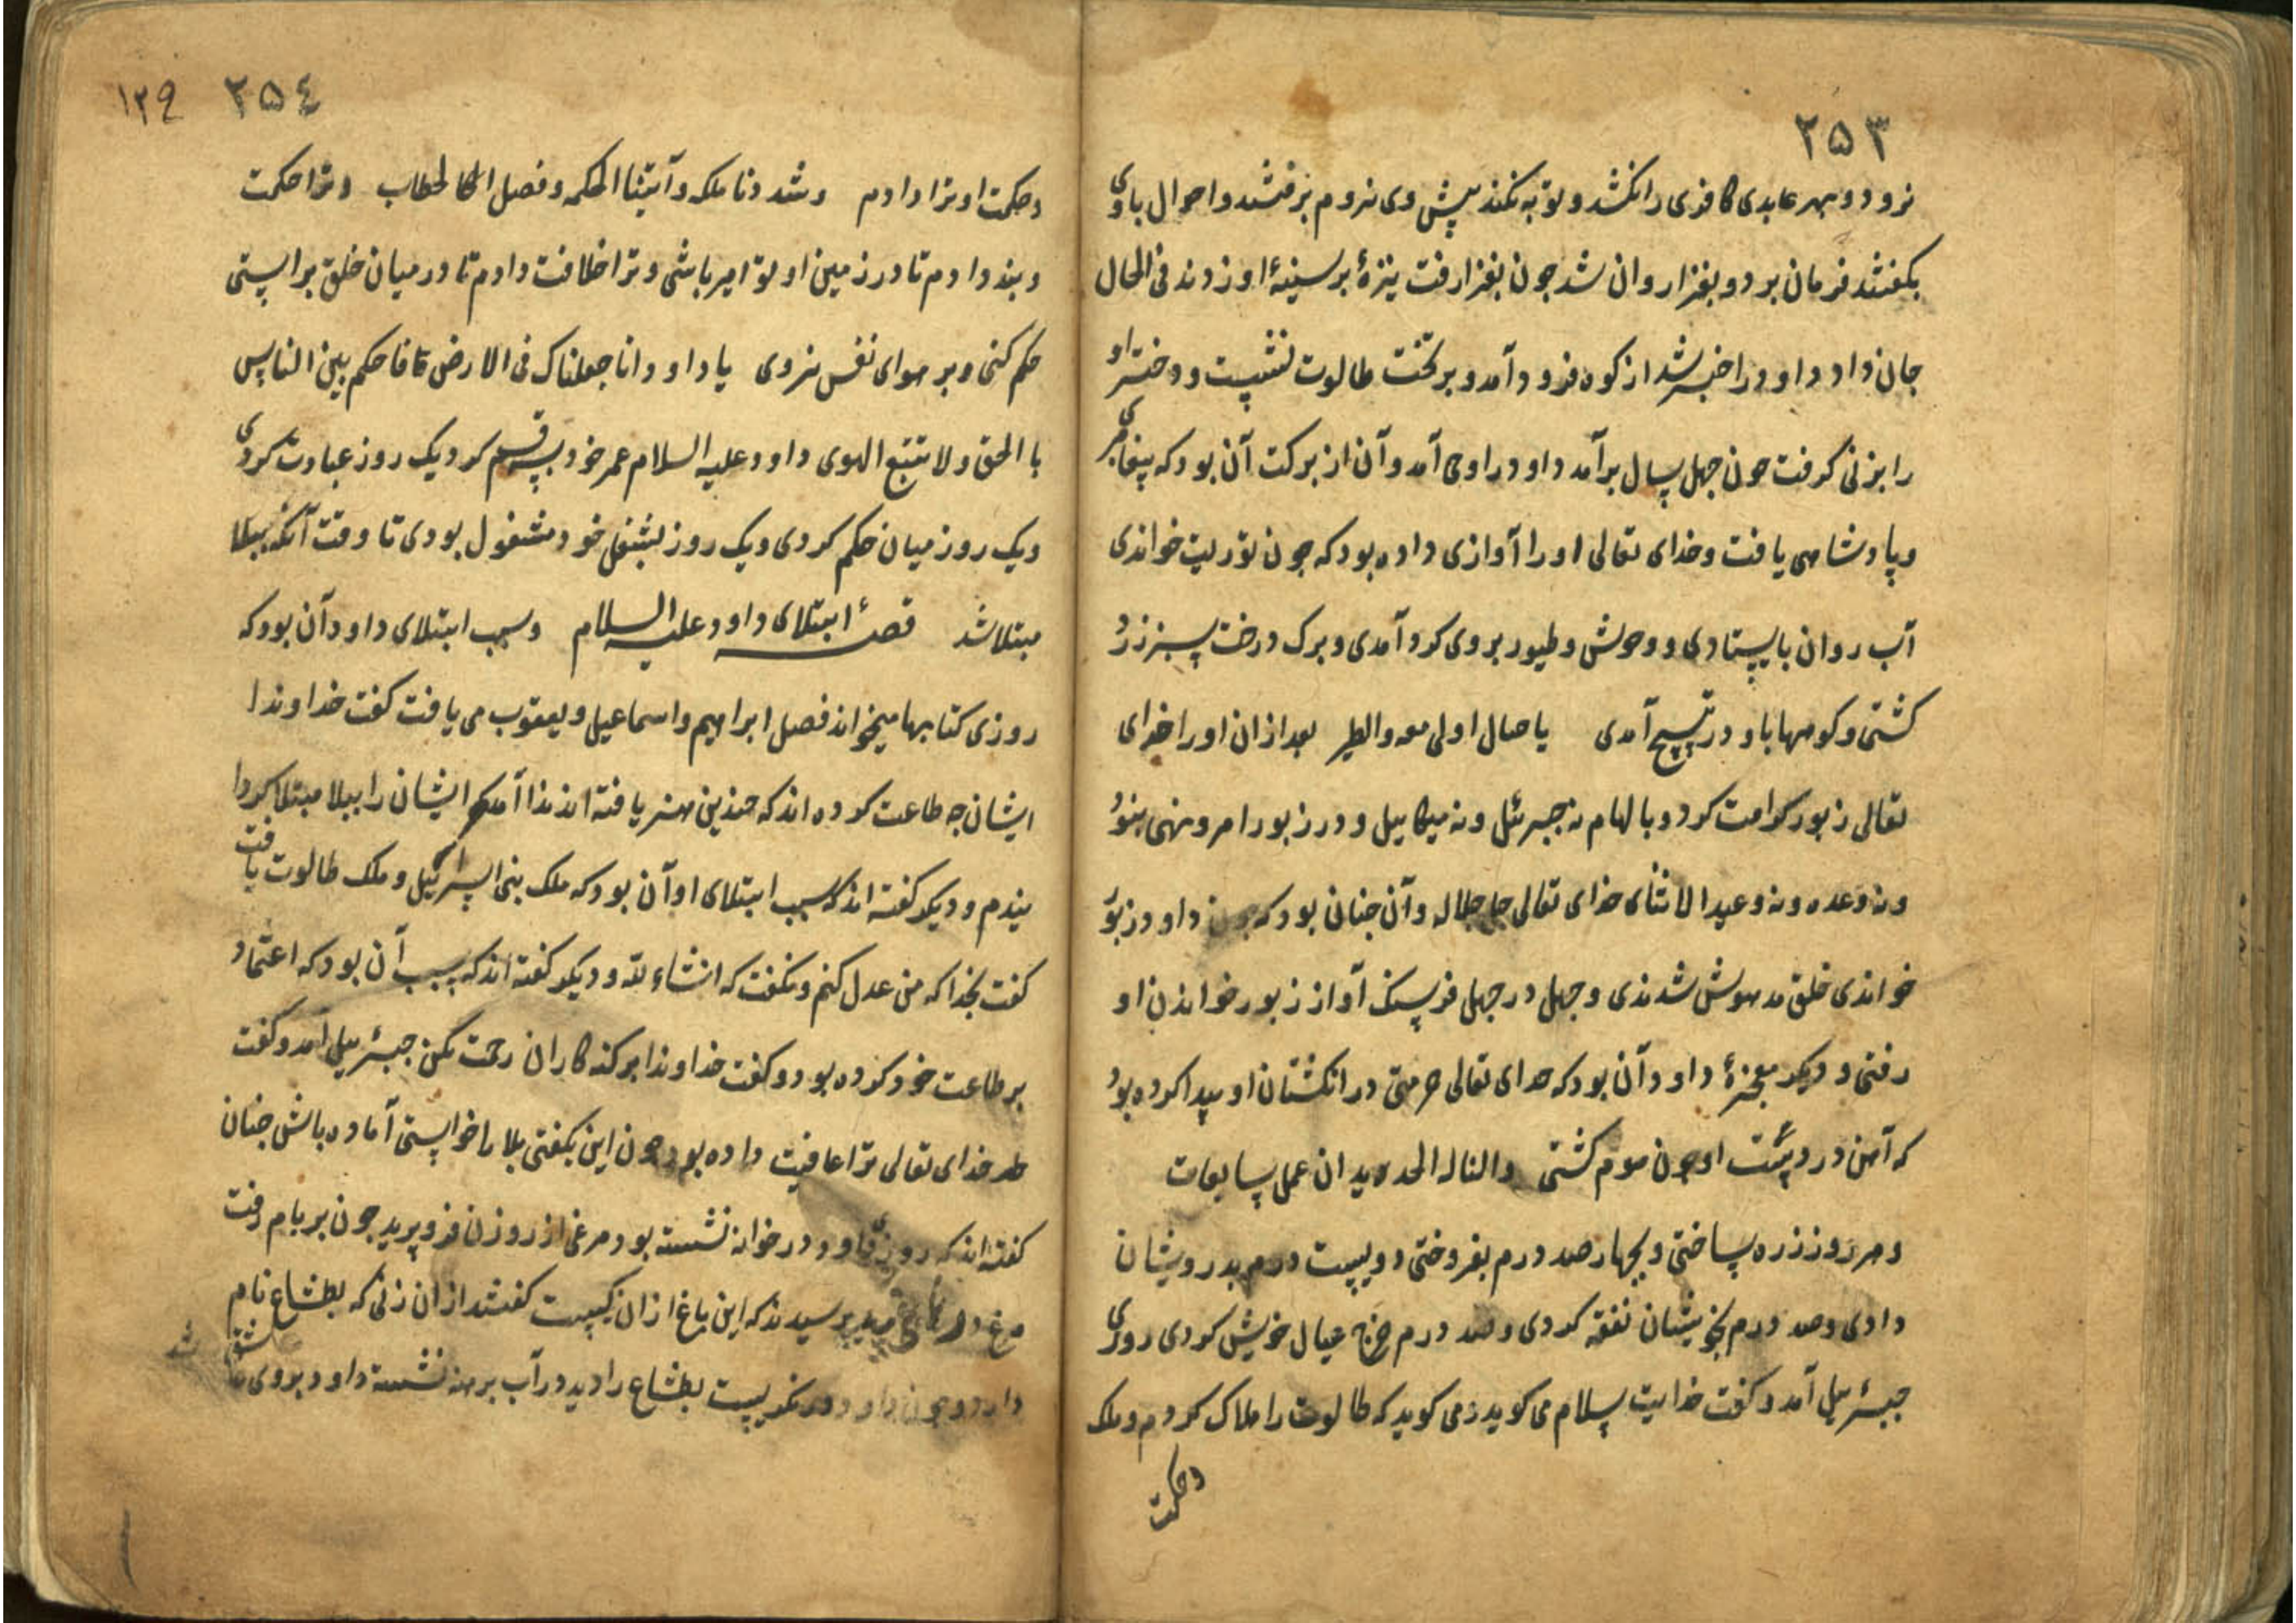 ۲۵۳
نرود و بهر عابدی کافری را نکشد و توبه نکند پیش وی نروم برفتند و احوال باوی
بکفتند فرمان برد و بغزا روان شد جون بغزا رفت نیزهٔ برسینهٔ او زدند فی الحال
جان داد داود را خبر شد از کوه فرود آمد و بر تخت طالوت نشست و دختر او
را بزنی کرفت جون جهل سال برآمد داود را وحی آمد و آن از برکت آن بود که پیغامبری
و پادشاهی یافت و خدای تعالی او را آوازی داده بود که جون توریت خواندی
آب روان بایستادی و وحوش و طیور بروی کرد آمدی و برک درخت سبز زرد
کشتی و کوهها باو در تسبیح آمدی یا جبال اوبی معه والطیر بعد ازان او را خدای
تعالی زبور کرامت کرد و بالهام نه جبرئل و نه میکاییل و در زبور امر و نهی نبود
و نه وعده و نه وعید الا ثنای خدای تعالی جل جلاله و آن جنان بود که جون داود زبور
خواندی خلق مدهوش شدندی و جهل در جهل فرسنک آواز زبور خواندن او
رفتی و دیکر معجزهٔ داود آن بود که خدای تعالی حرمتی در انکشتان او پیدا کرده بود
که آهن در دست او جون موم کشتی والنا له الحدید ان عمل سابغات
و هر روز زره ساختی و بچهار صد درم بفروختی دویست درم بدرویشان
دادی و صد درم بخویشان نفقه کردی و صد درم خرج عیال خویش کردی روزی
جبرئیل آمد و کفت خدایت سلام می کوید و می کوید که طالوت را هلاک کردم و ملک
و حکمت
۲۵٤ ۱۲۹
و حکمت او ترا دادم و شددنا ملکه و آتیناه الحکمه و فصل الخطاب و ترا حکمت
و پند دادم تا در زمین او تو امیر باشی و ترا خلافت دادم تا در میان خلق براستی
حکم کنی و بر هوای نفس نروی یا داود انا جعلناک فی الارض فاحکم بین الناس
بالحق ولا تتبع الهوی داود علیه السلام عمر خود بسه قسم کرد یک روز عبادت کردی
و یک روز میان حکم کردی و یک روز بشغل خود مشغول بودی تا وقت آنکه ببلا
مبتلا شد قصهٔ ابتلای داود علیه السلام و سبب ابتلای داود آن بود که
روزی کتابها میخواند فصل ابراهیم و اسماعیل و یعقوب می یافت کفت خداوندا
ایشان جه طاعت کرده اند که جندین هنر یافته اند ندا آمد که ایشان را ببلا مبتلا کردا
نیدم و دیکر کفته اند که سبب ابتلای او آن بود که ملک بنی اسرائیل و ملک طالوت یافت
کفت بخدا که من عدل کنم و نکفت که انشاء لله و دیکر کفته اند که سبب آن بود که اعتماد
بر طاعت خود کرده بود و کفت خداوندا بر کنه کاران رحمت مکن جبرئیل آمد و کفت
خدای تعالی ترا عافیت داده بود جون این بکفتی بلا را خواستی آماده باش جنان
کفته اند که روزی داود در خوانه نشسته بود مرغی از روزن فرو پرید جون بر بام رفت
مرغ در باغ پرید پرسیدند که این باغ ازان کیست کفتند ازان زنی که بطشاع نام
دارد و جون داود در نکریست بطشاع را دید در آب برهنه نشسته داود بروی عاشق شد